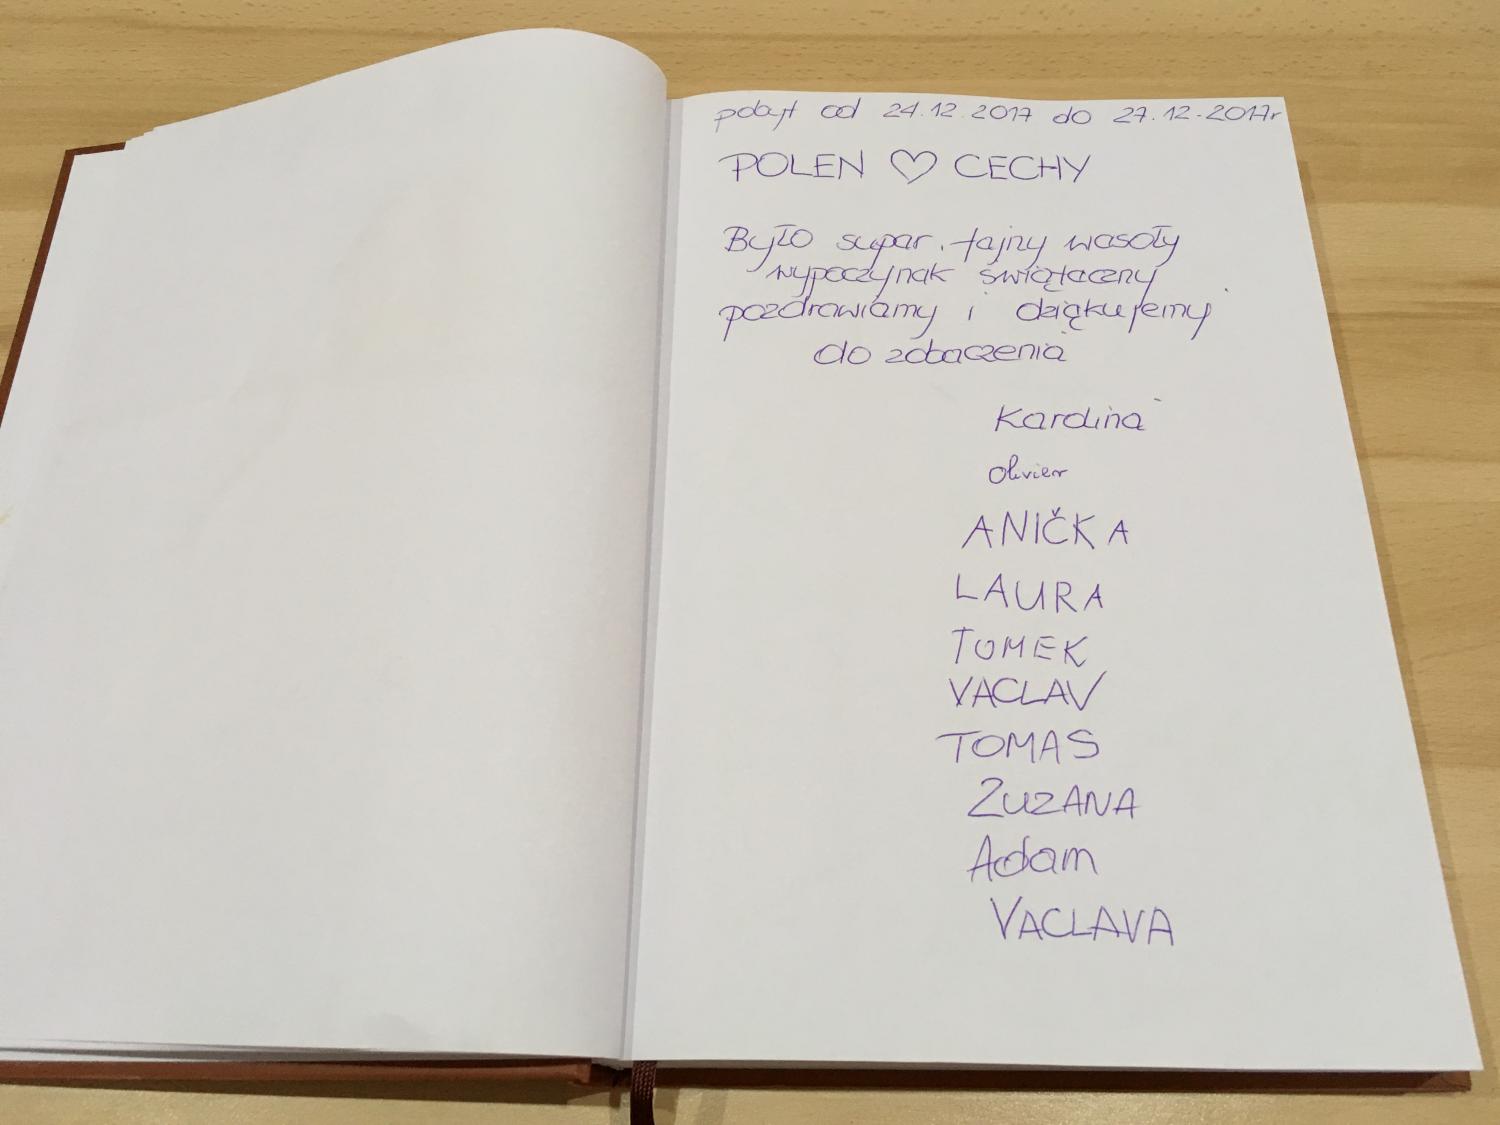 pobyt od 24.12.2017 do 27.12.2017r
POLEN ♡ CECHY
Było super. fajny wesoły
wypoczynek świąteczny
pozdrawiamy i dziękujemy
do zobaczenia
Karolina
Olivier
ANIČKA
LAURA
TOMEK
VACLAV
TOMAS
ZUZANA
Adam
VACLAVA